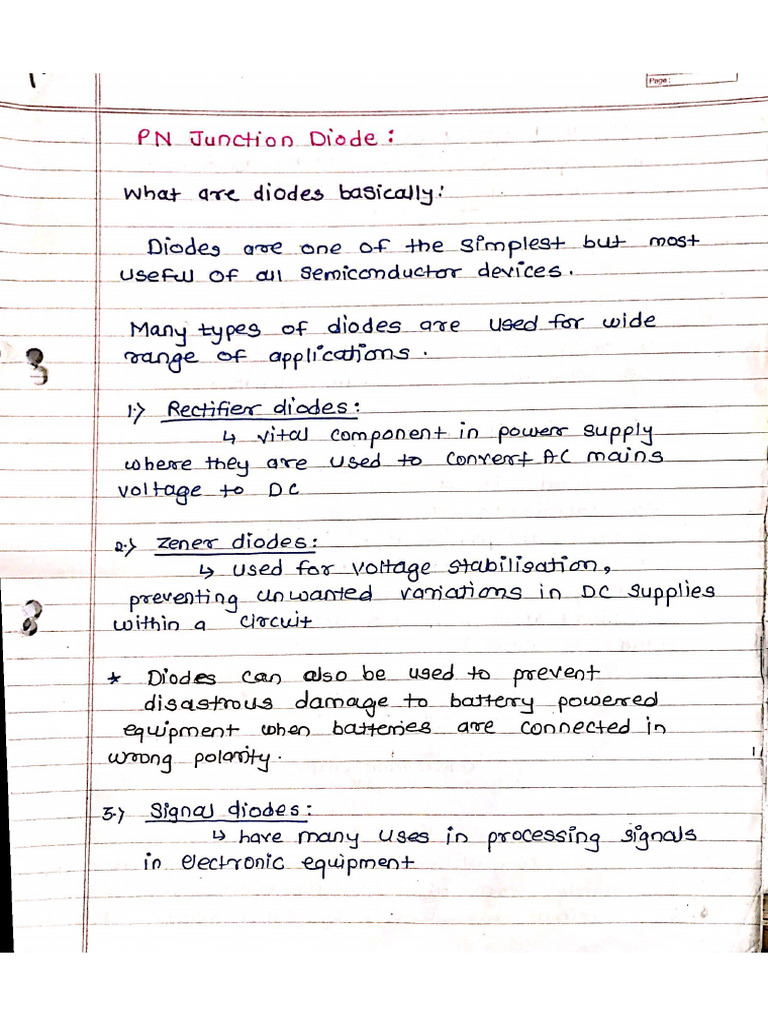 Page:
PN Junction Diode:
What are diodes basically:
Diodes are one of the simplest but most
useful of all semiconductor devices.
Many types of diodes are used for wide
range of applications.
1.) Rectifier diodes:
↳ vital component in power supply
where they are used to convert AC mains
voltage to DC
2.) Zener diodes:
↳ used for voltage stabilisation,
preventing unwanted variations in DC supplies
within a circuit
* Diodes can also be used to prevent
disastrous damage to battery powered
equipment when batteries are connected in
wrong polarity.
3.) Signal diodes:
↳ have many uses in processing signals
in electronic equipment